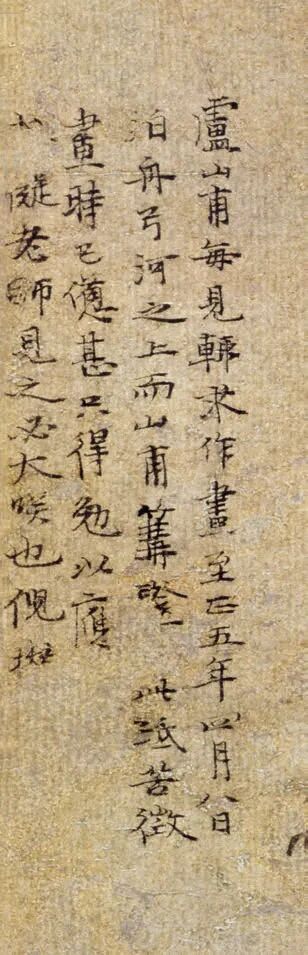 盧山甫每見輒求作畫至正五年四月八日
泊舟弓河之上而山甫篝燈 此紙苦徵
畫時已憊甚只得勉以應
大癡老師見之必大咲也倪瓚